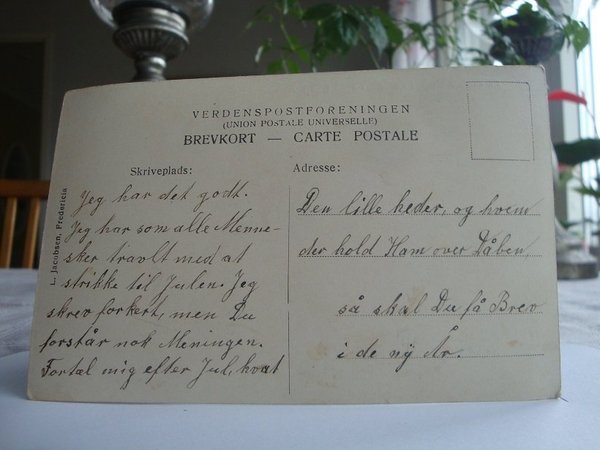 VERDENSPOSTFORENINGEN
(UNION POSTALE UNIVERSELLE)
BREVKORT — CARTE POSTALE
Skriveplads:
Jeg har det godt.
Jeg har som alle Menne-
sker travlt med at
strikke til Julen. Jeg
skrev forkert, men Du
forstår nok Meningen.
Fortæl mig efter Jul, hvad
Adresse:
Den lille heder, og hvem
der hold Ham over Dåben,
så skal Du få Brev
i de ny År.
L. Jacobsen, Fredericia